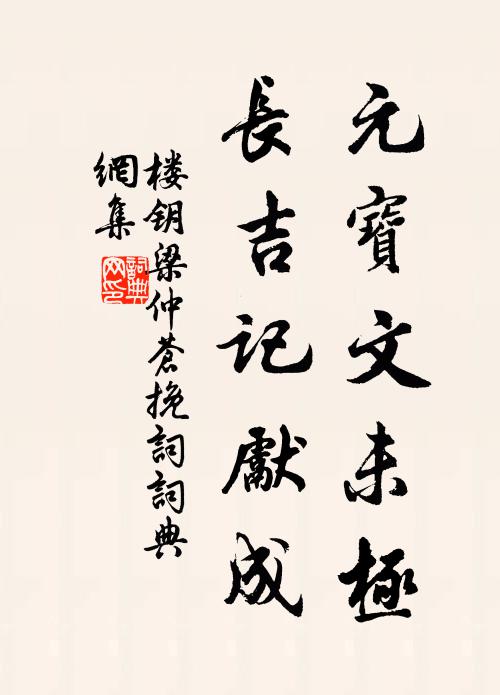 元寶文未極
長吉記獻成
楼钥梁仲蒼挽詞詞典
網集
詞典
网印